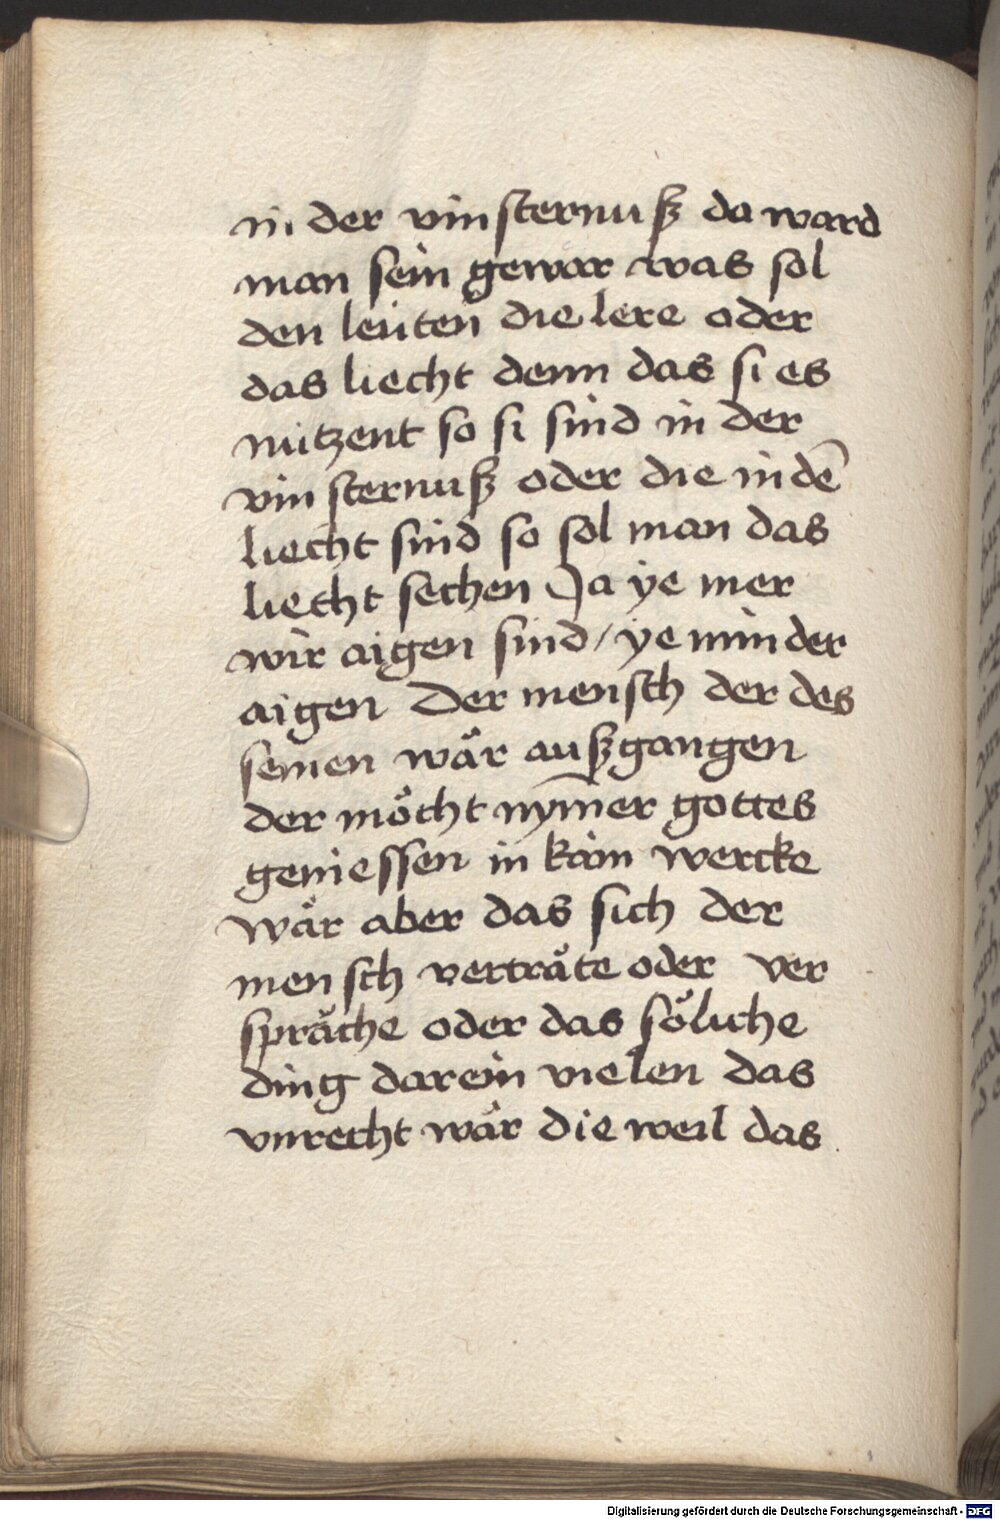 in der vinsternuß da ward
man sein gewar was sol
den leuten die lere oder
das liecht denn das si es
nützent so si sind in der
vinsternuß oder die in dē
liecht sind so sol man das
liecht sechen Ja ye mer
wir aigen sind / ye minder
aigen Der mensch der des
seinen wär außgangen
der möcht nym̄er gottes
geniessen in kaim wercke
wär aber das sich der
mensch verträte oder ver
spräche oder das söliche
ding darein vielen das
vnrecht wär die weil das
Digitalisierung gefördert durch die Deutsche Forschungsgemeinschaft - DFG